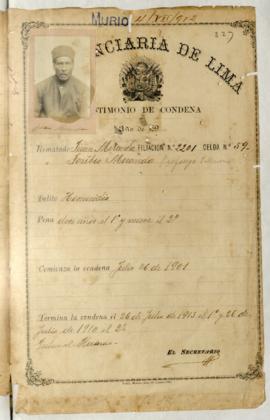 MURIO
227
NCIARIA DE LIMA
STIMONIO DE CONDENA
Año de
Rematado Juan FILIACIÓN Nº 2201 CELDA Nº 59.
Toribio Miranda
Delito Homicidio
Pena doce años al 1º y nueve al 2º
Comienza la condena Julio 26 de 1901
Termina la condena el 26 de Julio de 1913 al 1º y 26 de
Julio de 1910 al 2º
EL SECRETARIO